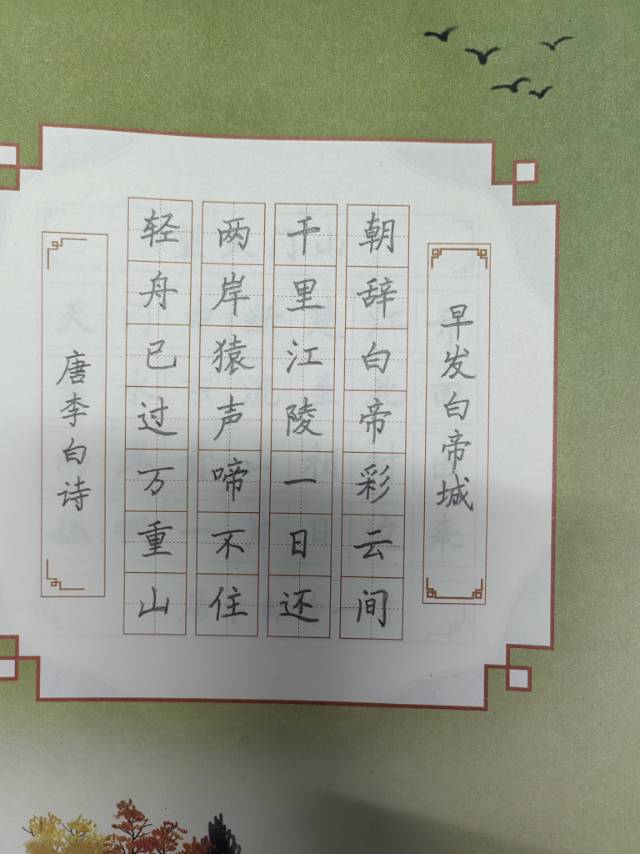 早发白帝城
朝辞白帝彩云间
千里江陵一日还
两岸猿声啼不住
轻舟已过万重山
唐李白诗